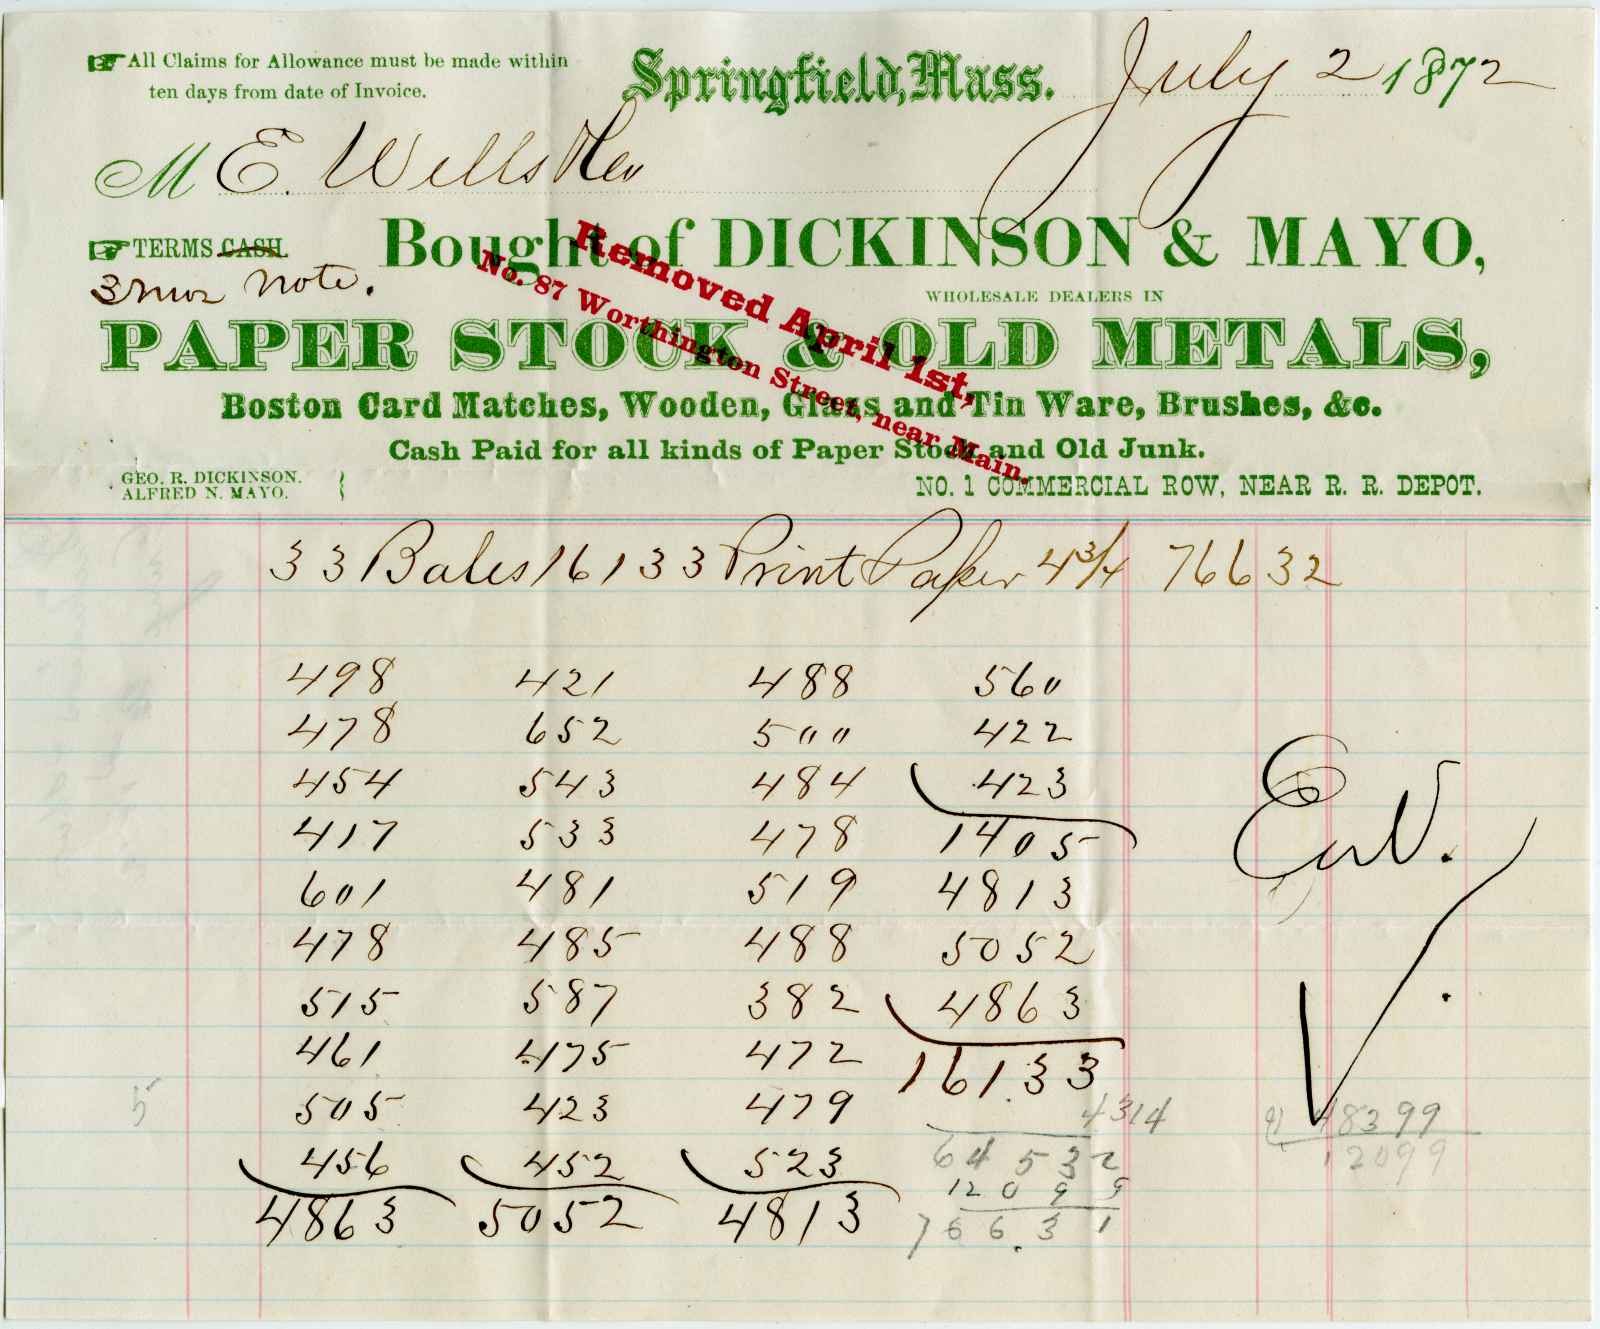 All Claims for Allowance must be made within
ten days from date of Invoice.
Springfield, Mass. July 2 1872
M E. Wells
TERMS CASH
3 mos note.
Bought of DICKINSON & MAYO,
Removed April 1st,
No. 87 Worthington Street, near Main.
WHOLESALE DEALERS IN
PAPER STOCK & OLD METALS,
Boston Card Matches, Wooden, Glass and Tin Ware, Brushes, &c.
Cash Paid for all kinds of Paper Stock and Old Junk.
GEO. R. DICKINSON.
ALFRED N. MAYO.
NO. 1 COMMERCIAL ROW, NEAR R. R. DEPOT.
33 Bales 16133 Print Paper 4 3/4 76632
498 421 488 560
478 652 500 422
454 543 484 423
417 533 478 1405
601 481 519 4813
478 485 488 5052
515 587 382 4863
461 475 472 16133
505 423 479
456 452 523
4863 5052 4813
5
4 3/4
64532
12099
766.31
48399
12099